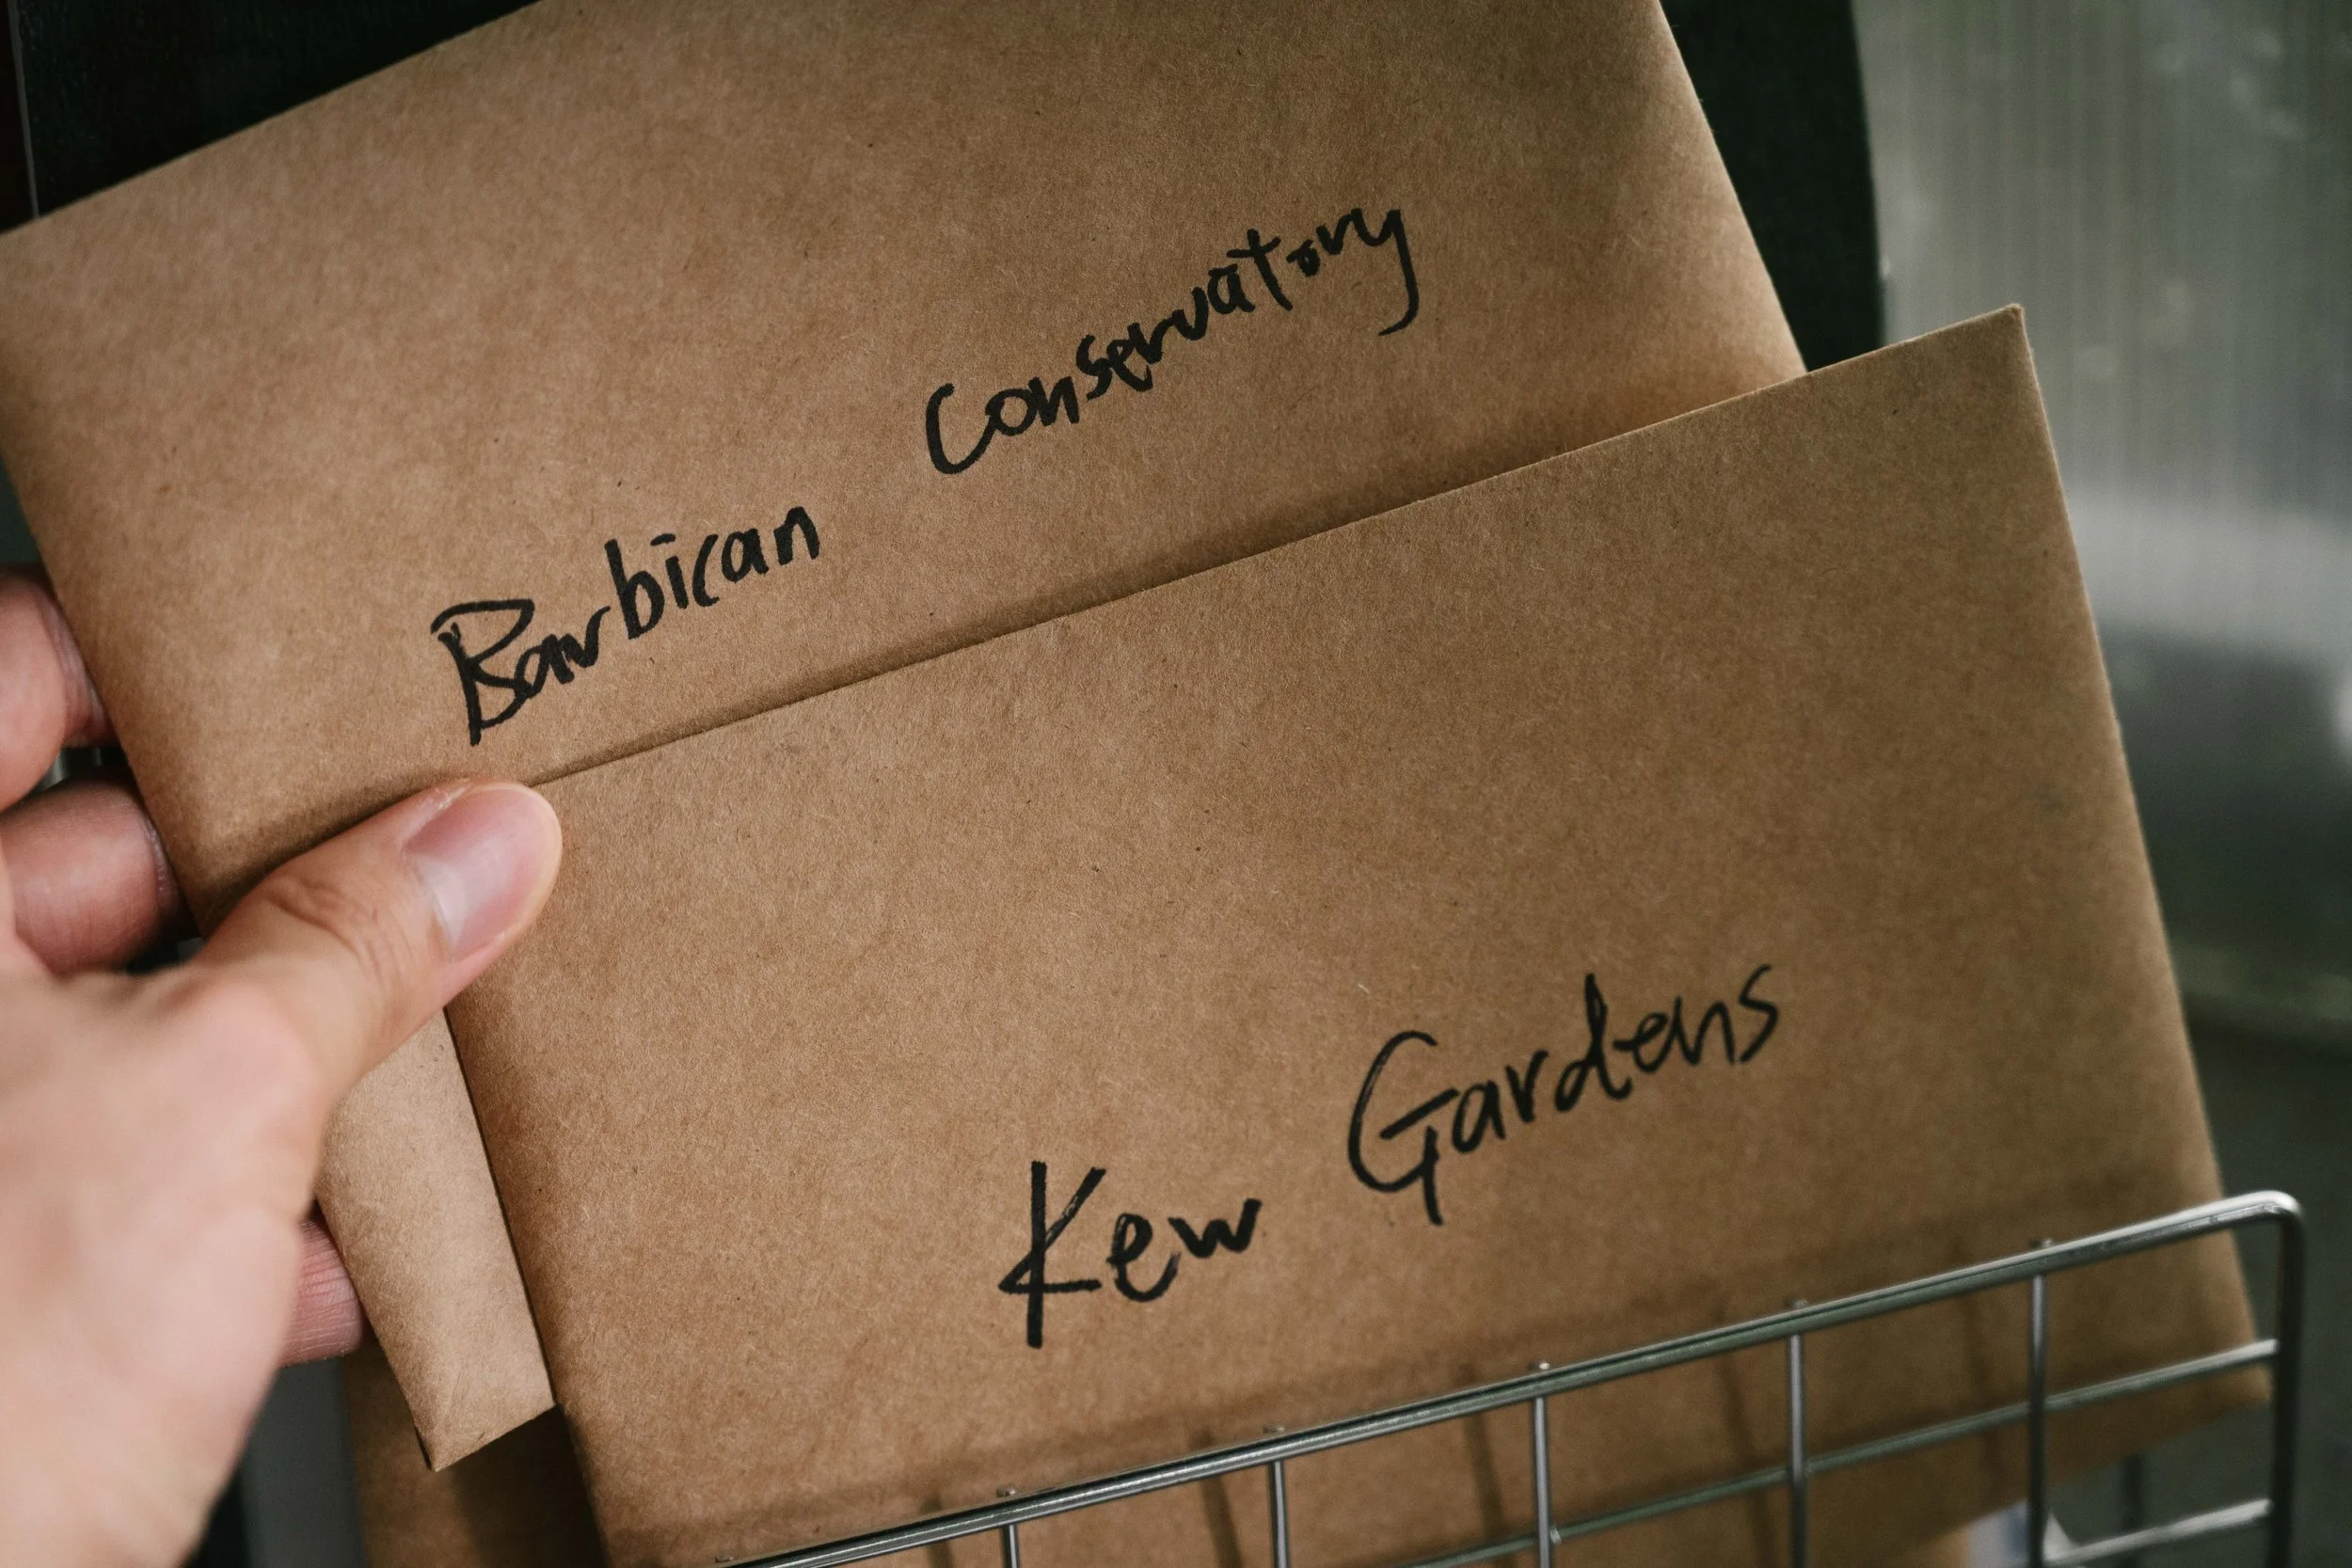 Barbican Conservatory
Kew Gardens